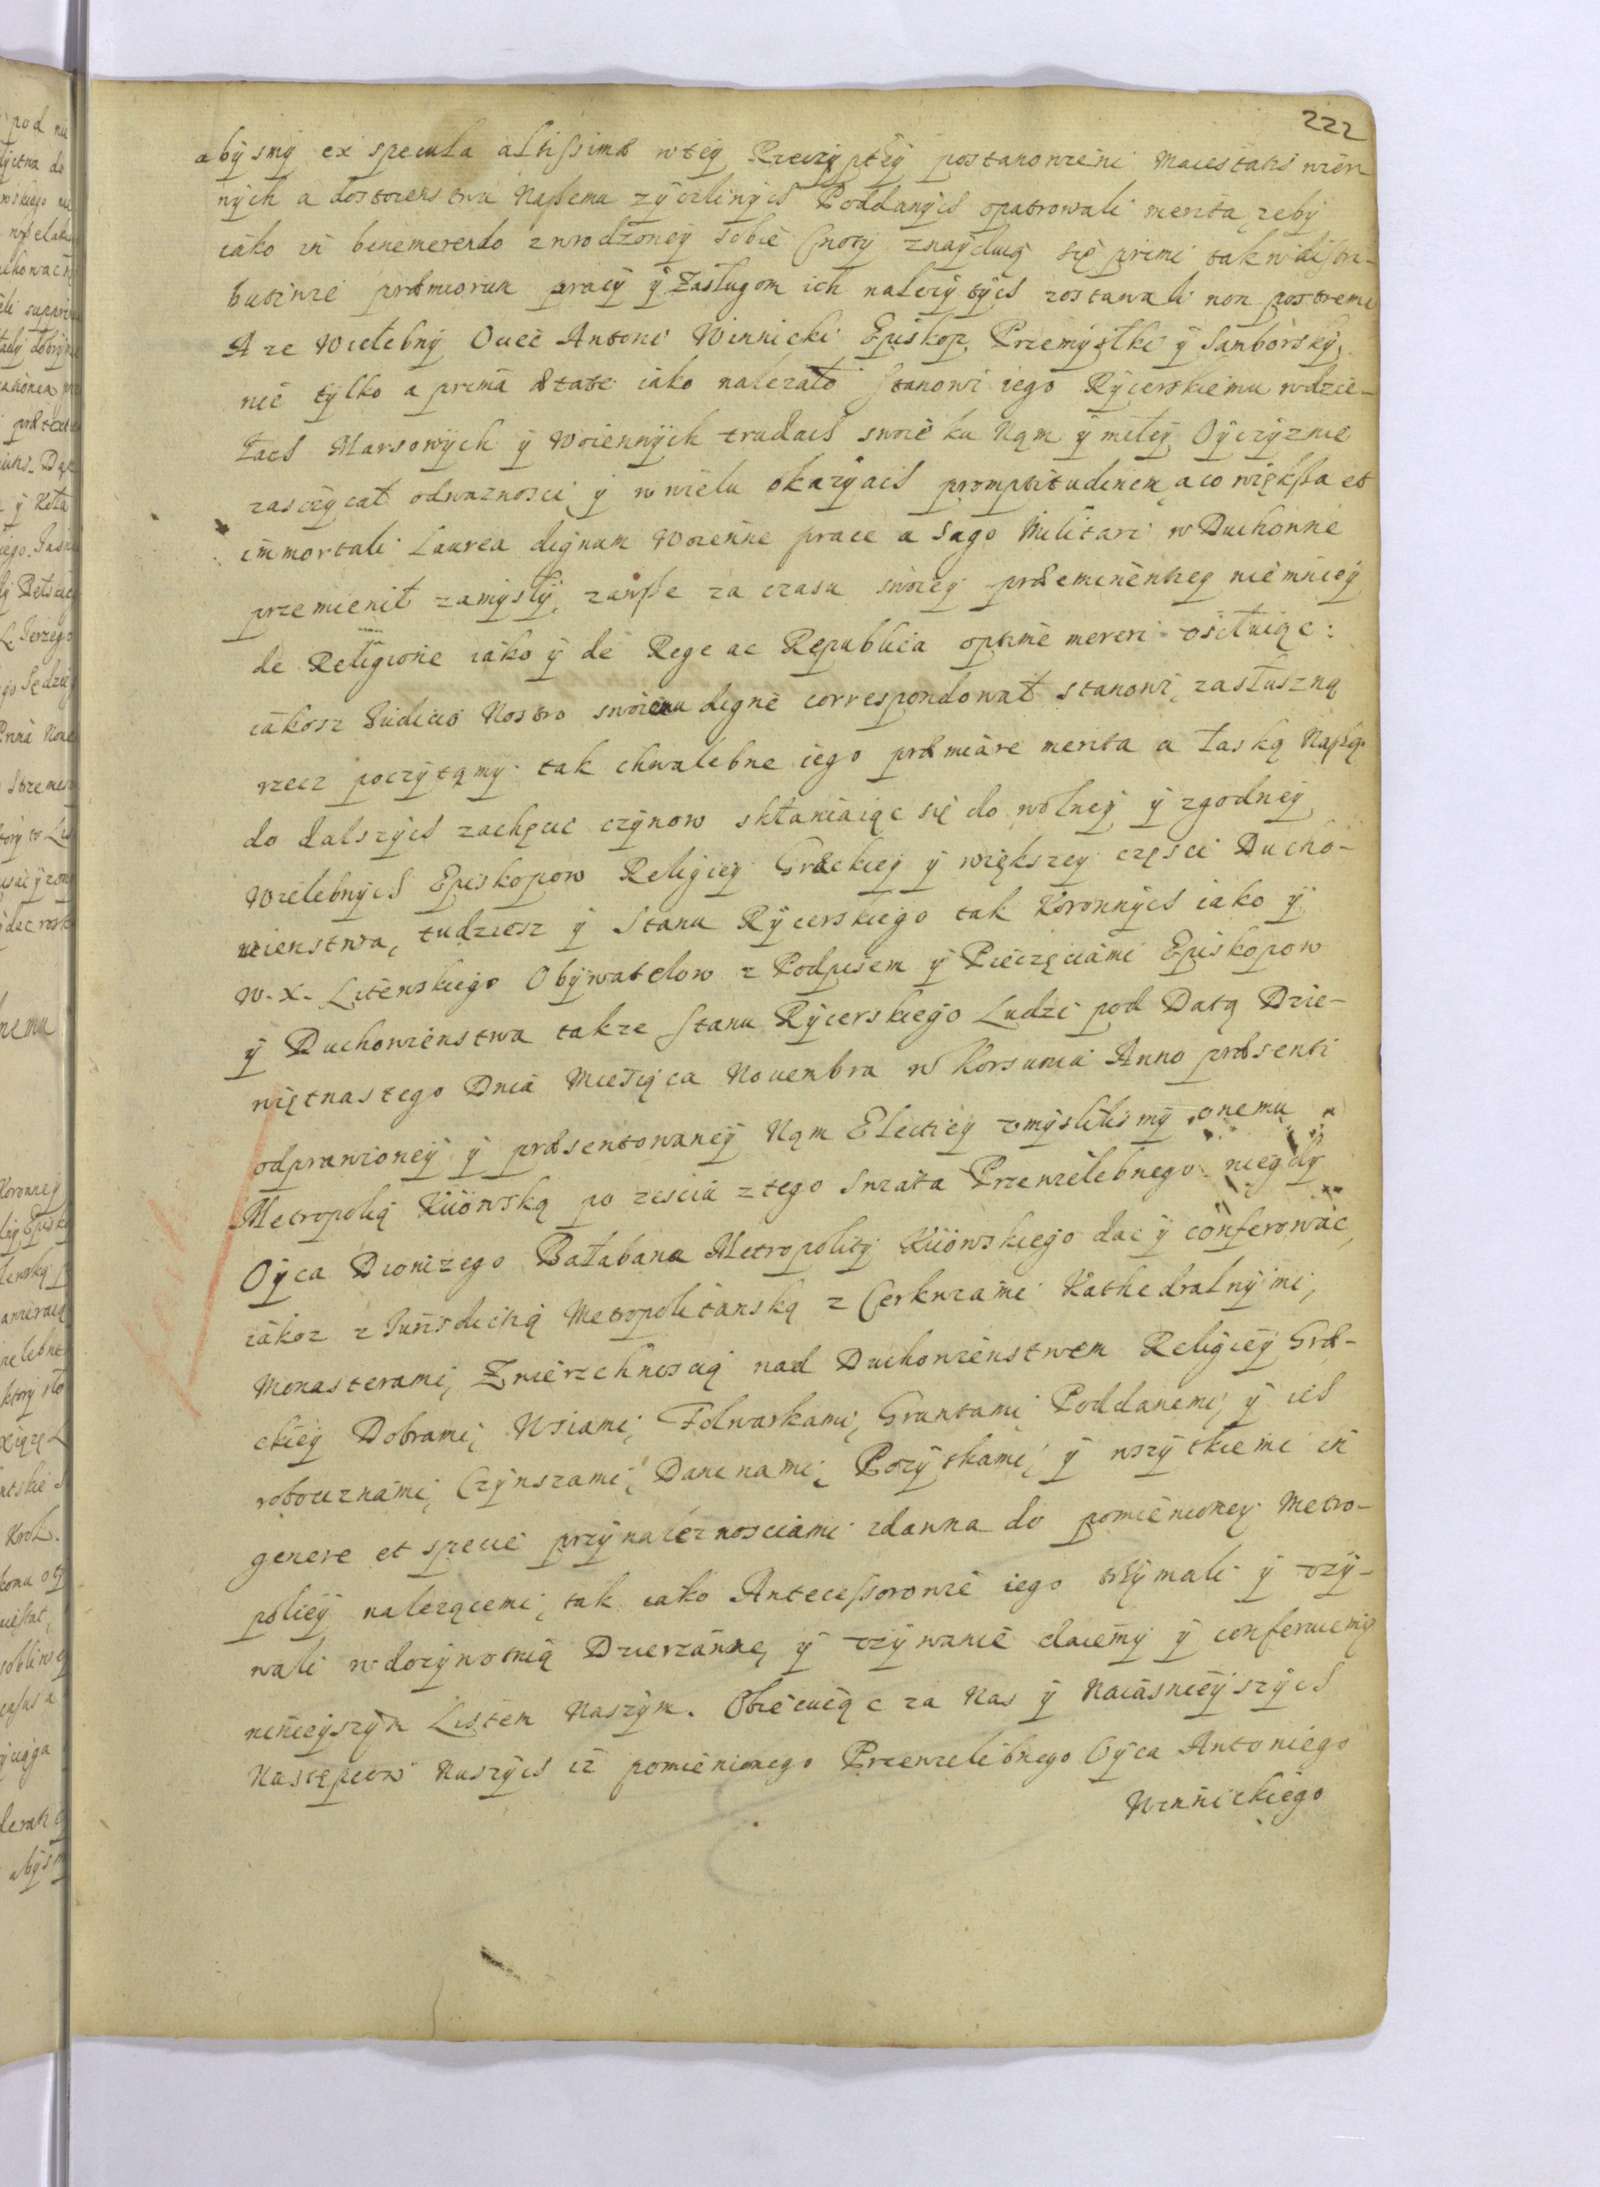 222
abysmy ex specula altissima w tey Rzeczyptey postanowieni Maiestatis wier
nych a dostoienstwu Naszemu zyczliwych Poddanych opatrowali merita, zeby
iako in benemerendo z wrodzoney sobie Cnoty znayduią się primi tak w distri-
butiwie praemiorum pracy y Zasługom ich nalezytych zostawali non postremi
A ze Wielebny Ociec Antoni Winnicki Episkop Przemyslki y Samborsky
nie tylko a prima aetate iako nalezało stanowi iego Rycerskiemu w dzie-
łach Marsowych y Woiennych trudach swoię ku Nąm y miłey Oyczyznie
zaszczycał odwaznosci y w wielu okazyach promptitudinem, a co większa et
immortali Laurea dignam Woienne prace a Sago Militari w Duchonne
przemienił zamysły, zawsze za czasu swoiey praeeminentiey niemniey
de Religione iako y de Rege ac Republica optime mereri usiłuiąc:
iakosz Iudicio Nostro swoiemu digne correspondował stanowi, zasłuszną
rzecz poczytąmy tak chwalebne iego praemiare merita a łaską Naszą
do dalszych zachęcic czynow skłaniaiąc się do wolney y zgodney
Wielebnych Episkopow Religiey Graeckiey y większey części Ducho-
wienstwa, tudziesz y Stanu Rycerskiego tak Koronnych iako y
W. X. Litewskiego Obywatelow z Podpisem y Pieczęciami Episkopow
y Duchowienstwa takze Stanu Rycerskiego Ludzi pod Datą Dzie-
więtnastego Dnia Miesiąca Nouembra w Korsuniu Anno praesenti
odprawioney y praesentowaney Nąm Electiey umyslilismy onemu
Metropolią Kiiowską po zesciu z tego Swiata Przewielebnego niegdy
Oyca Dionizego Bałabana Metropolity Kiiowskiego dac y conferowac,
iakoz z Iurisdictią Metropolitanską z Cerkwiami Kathedralnymi,
Monasterami, Zwierzchnoscią nad Duchowienstwem Religiey Grae-
ckiey Dobrami, Wsiami, Folwarkami, Gruntami, Poddanemi, y ich
robociznami, Czynszami, Daninami, Pozytkami, y wszytkiemi in
genere et specie przynaleznosciami zdawna do pomienioney Metro-
poliey nalezącemi, tak iako Antecessorowie iego trzymali y uzy-
wali w dozywotnią Dzierzawe, y uzywanie daiemy y conferuiemy
ninieyszym Listem Naszym. Obiecuiąc za Nas y Naiasnieyszych
Następcow Naszych iz pomienionego Przewielebnego Oyca Antoniego
Winnickiego